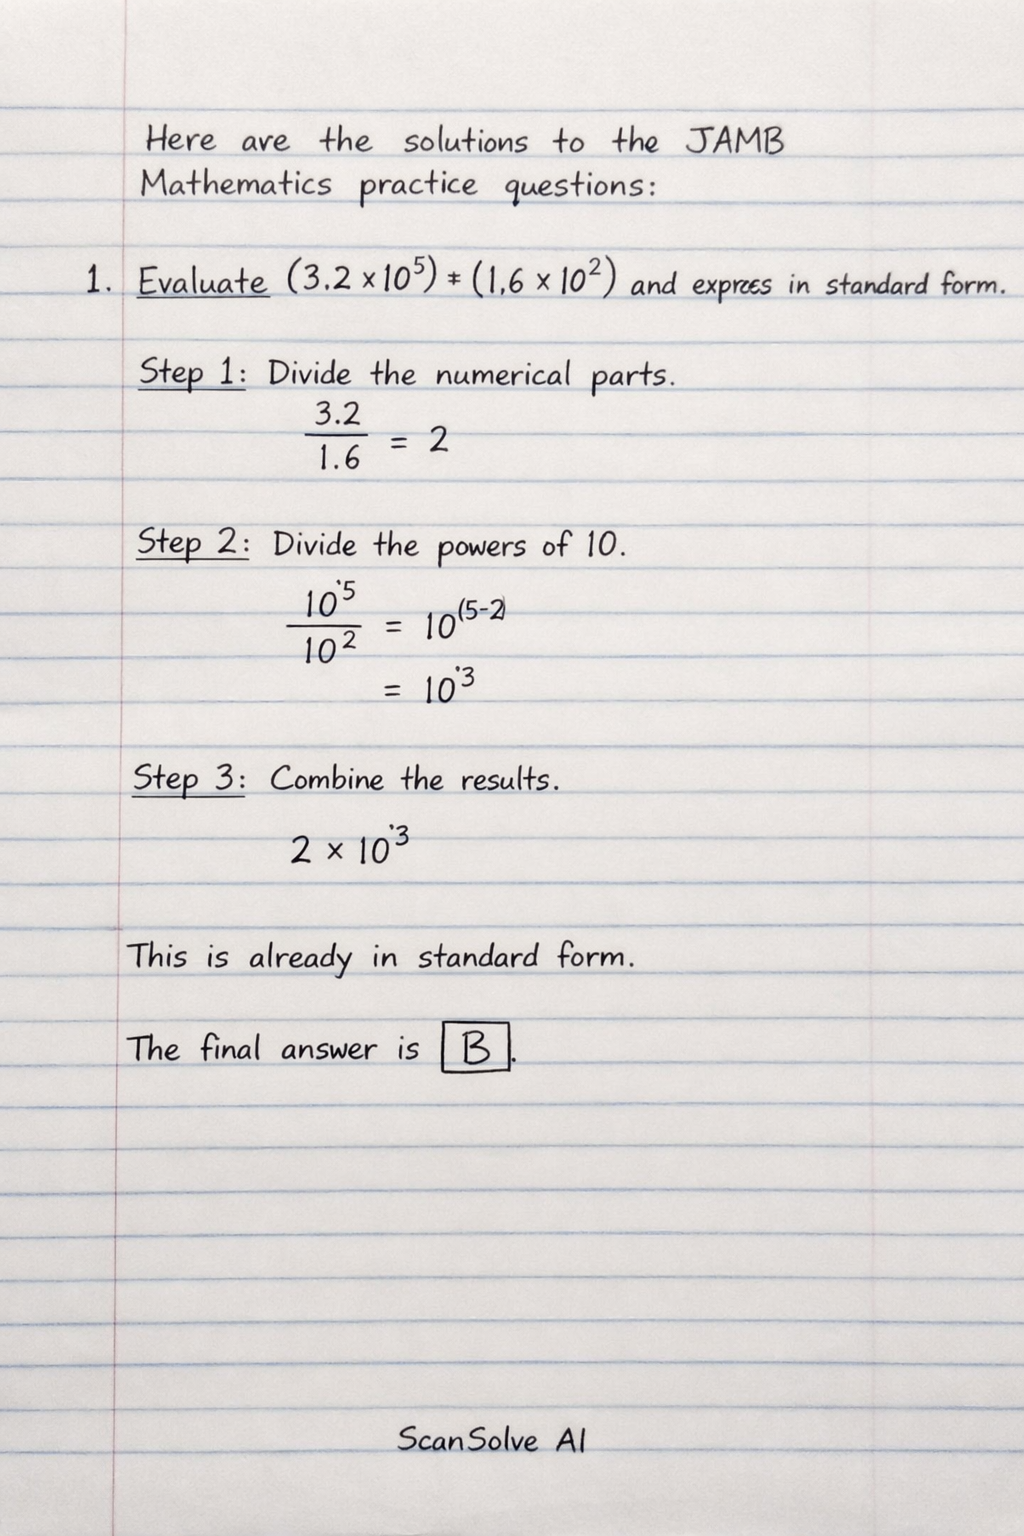 Here are the solutions to the JAMB
Mathematics practice questions:
1. Evaluate (3.2 × 10⁵) ÷ (1,6 × 10²) and exprees in standard form.
Step 1: Divide the numerical parts.
3.2
1.6 = 2
Step 2: Divide the powers of 10.
10˙⁵
10² = 10⁽⁵⁻²⁾
= 10˙³
Step 3: Combine the results.
2 × 10˙³
This is already in standard form.
The final answer is B.
ScanSolve AI